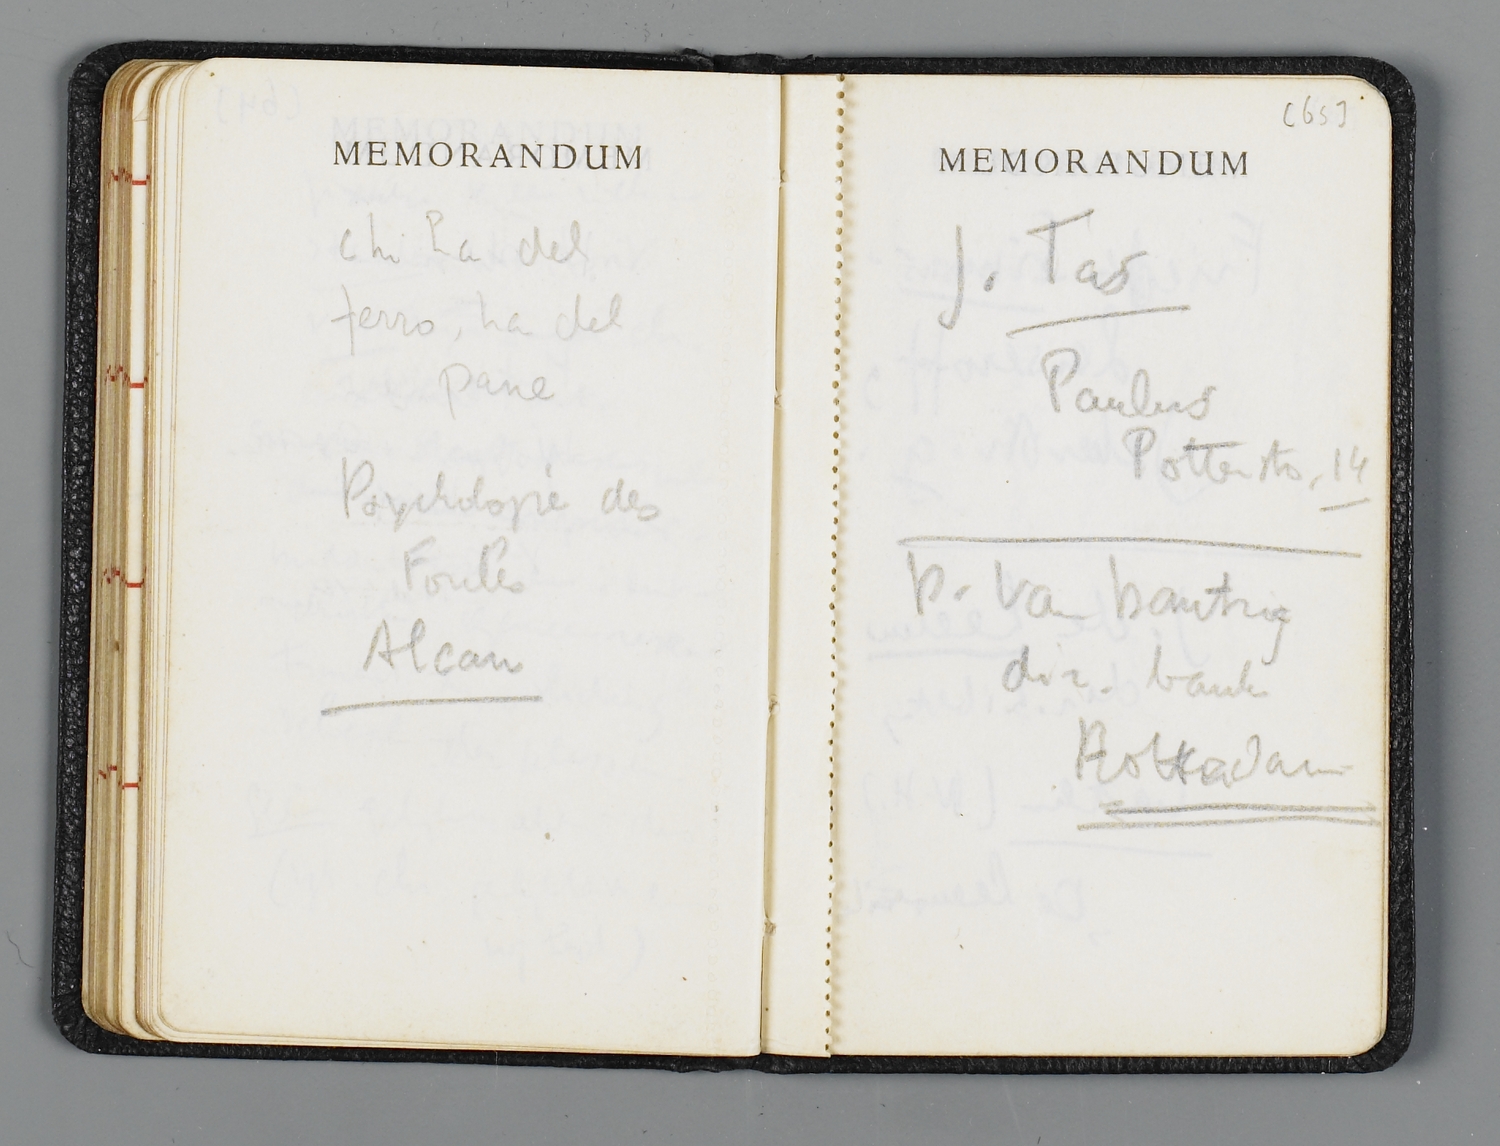 MEMORANDUM
chi ha del
ferro, ha del
pane
Psychologie des
Foules
Alcan
[65]
MEMORANDUM
J. Tas
Paulus
Potterstr, 14
v. Van
dir. bank
Rotterdam